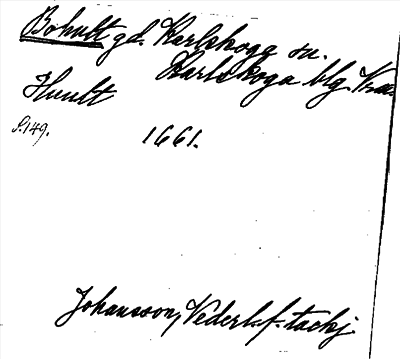 Bohult gd. Karlskoga sn.
Karlskoga blg. Vrml.
Hult
S. 149.
1661.
Johansson, Vederl. f. tackj.